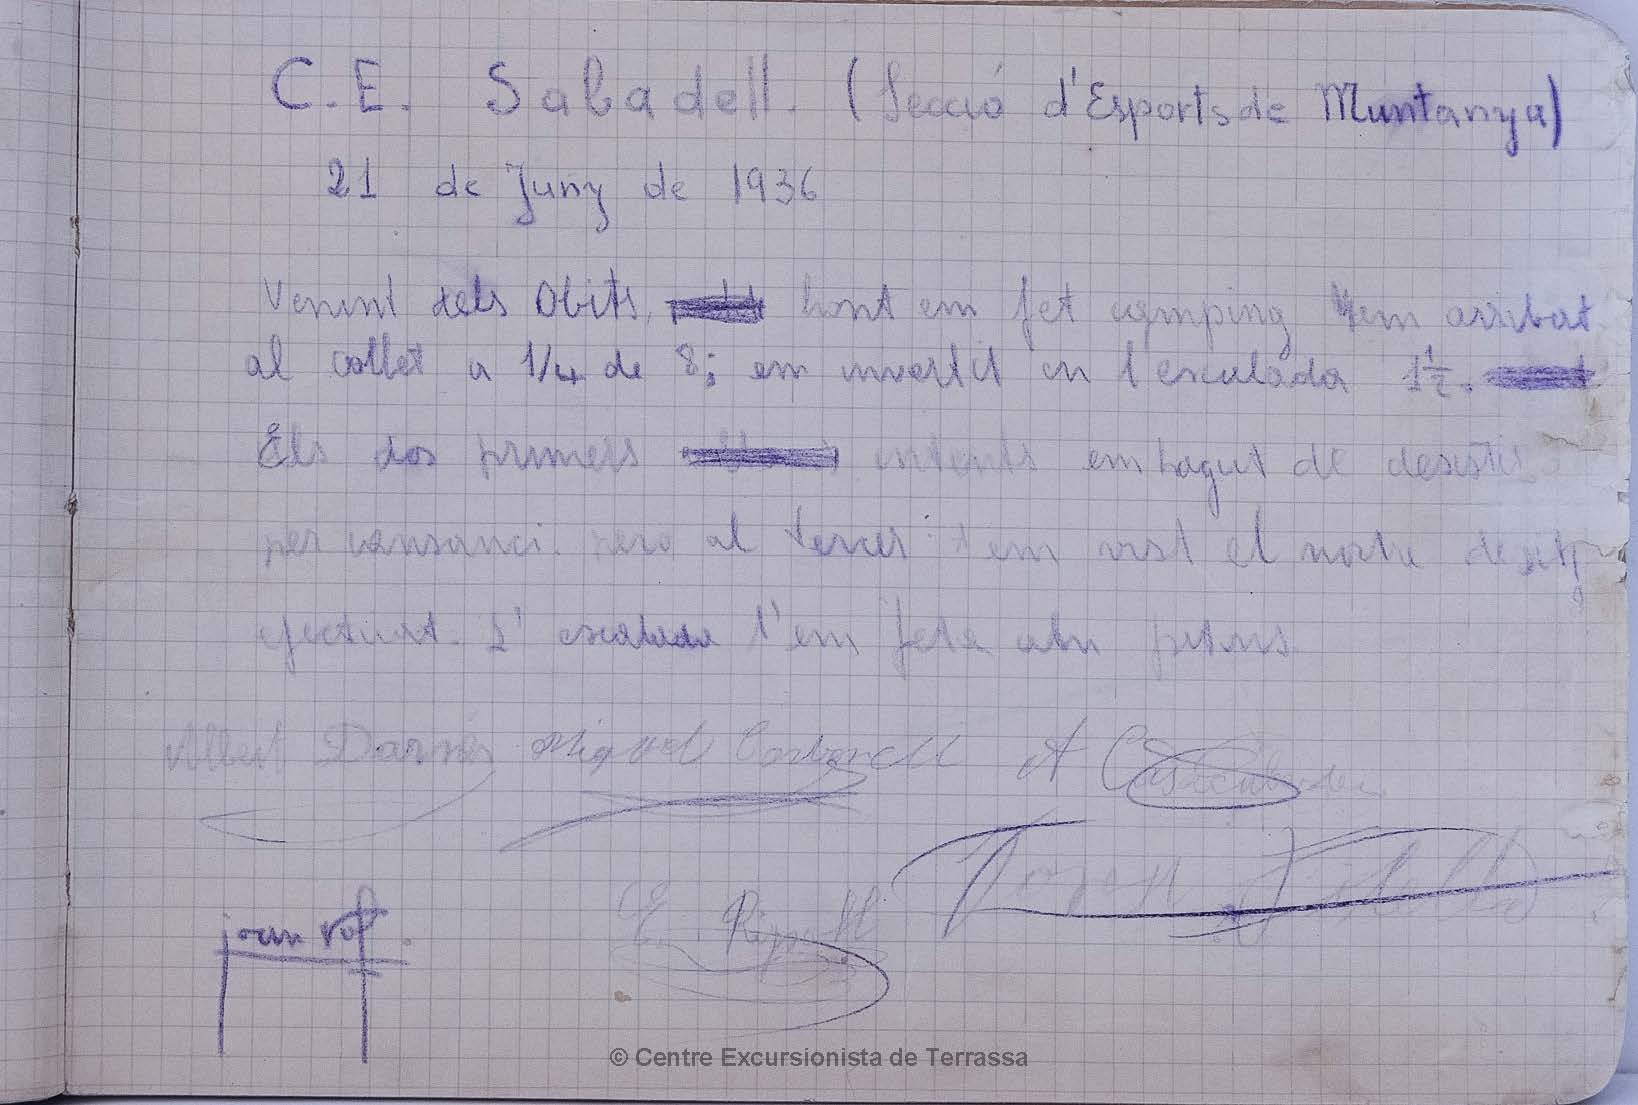 C.E. Sabadell. (Secció d'Esports de Muntanya)
21 de Juny de 1936
Venint dels Obits, hont em fet camping Hem arribat
al collet a 1/4 de 8; em invertit en l'escalada 1 1/2.
Els dos primers intents em hagut de desistir
per cansanci. pero al tercer em vist el nostre desitj
efectuat. L'escalada l'em feta amb pitons.
Albert Darnés Miquel Carbonell A
joan rof
E. Ripoll
Josep
© Centre Excursionista de Terrassa